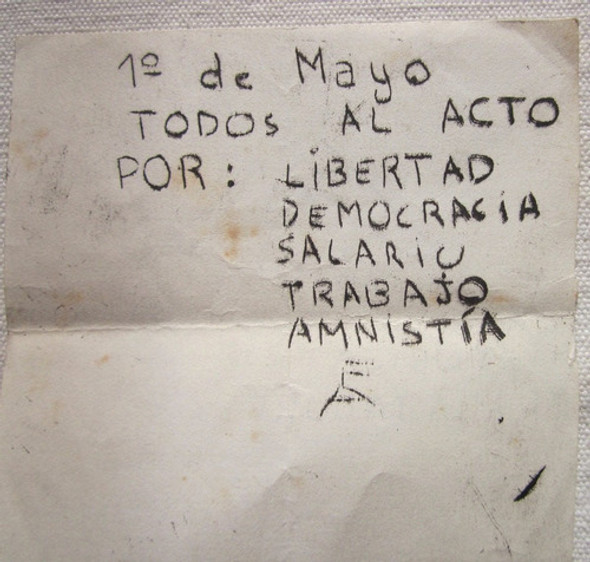 1º de Mayo
TODOS AL ACTO
POR: LIBERTAD
DEMOCRACIA
SALARIO
TRABAJO
AMNISTÍA